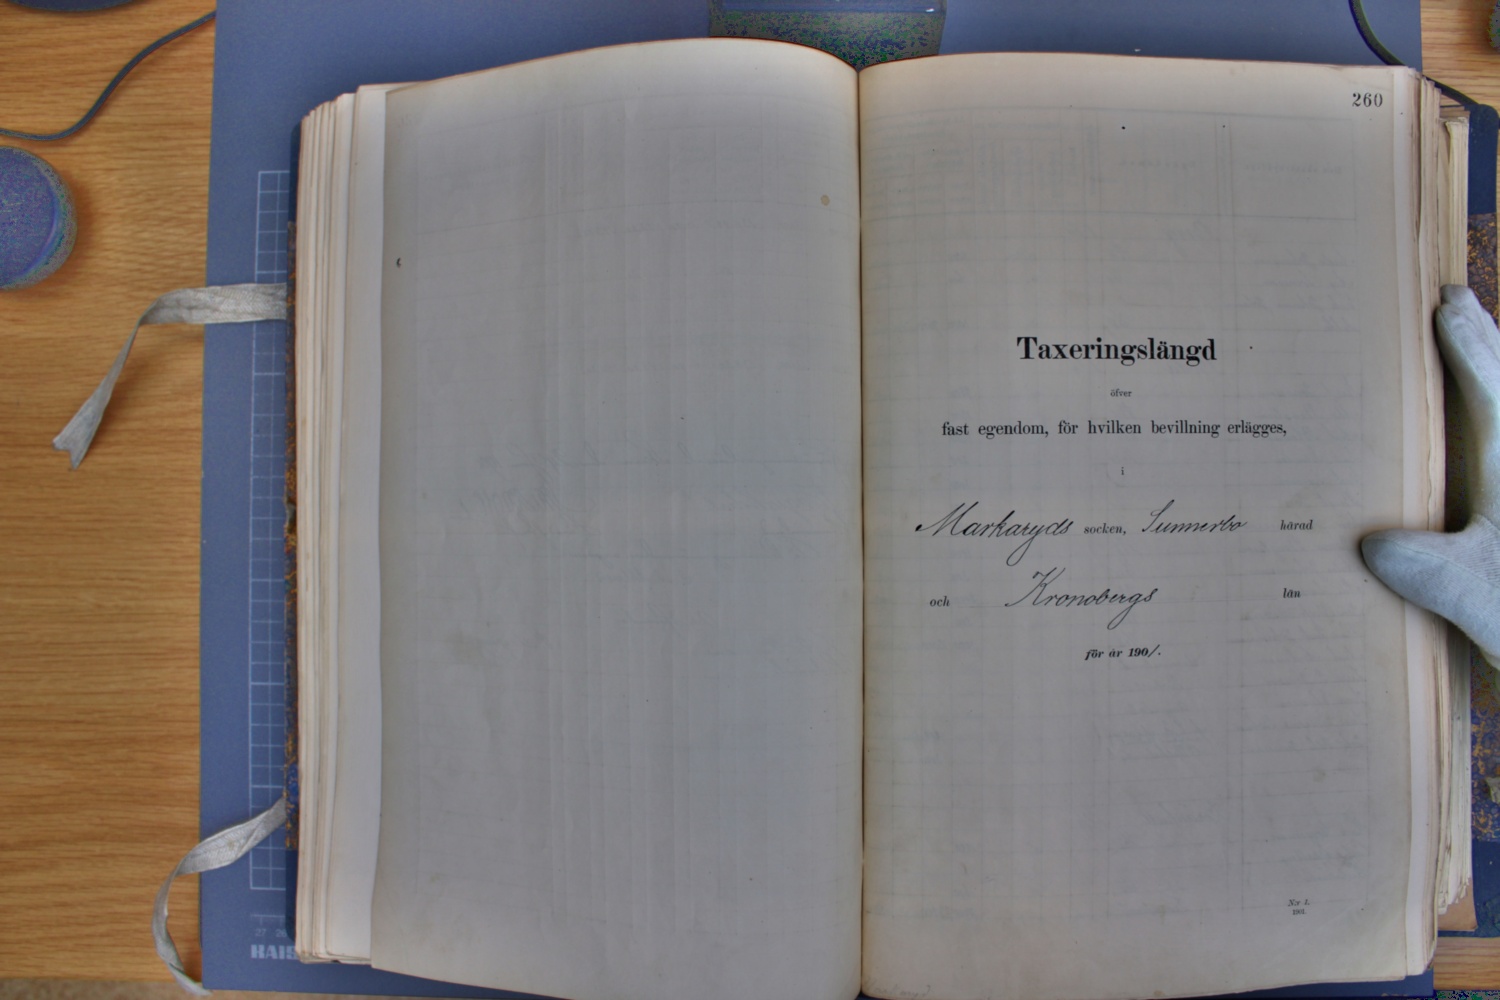 260
Taxeringslängd
öfver
fast egendom, för hvilken bevillning erlägges,
i
Markaryds socken, Sunnerbo härad
och Kronobergs län
för år 190/.
N:r 1.
1901.
27